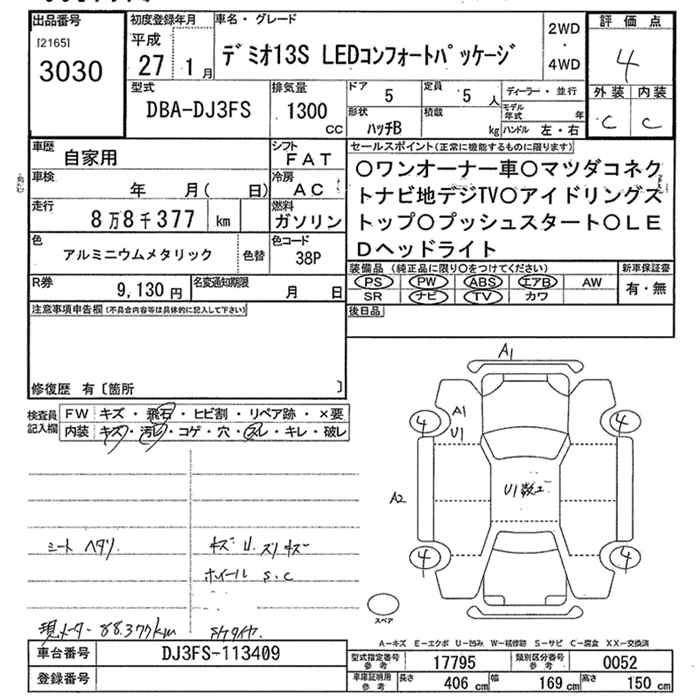 出品番号
[2165]
3030
初度登録年月
平成
27 1月
車名・グレード
デミオ13S LEDコンフォートパッケージ
2WD
・
4WD
評価点
4
外装 内装
C C
型式
DBA-DJ3FS
排気量
1300
CC
ドア
5
定員
5 人
ディーラー・並行
モデル年式 年
形状
ハッチB
積載
kg
ハンドル 左・右
車歴
自家用
シフト
FAT
車検
年 月( 日)
冷房
AC
走行
8万8千377 km
燃料
ガソリン
色
アルミニウムメタリック
色替
色コード
38P
R券
9,130円
名変通知期限
月 日
セールスポイント(正常に機能するものに限ります)
○ワンオーナー車○マツダコネク
トナビ地デジTV○アイドリングス
トップ○プッシュスタート○LE
Dヘッドライト
装備品(純正品に限り○をつけてください)
PS PW ABS エアB AW
SR ナビ TV カワ
新車保証書
有・無
後日品
注意事項申告欄(不具合内容等は具体的に記入して下さい)
修復歴 有〔箇所 〕
検査員
記入欄
FW キズ・飛石・ヒビ割・リペア跡・×要
内装 キズ・汚レ・コゲ・穴・スレ・キレ・破レ
シート ヘタリ
キズ U スリキズ
ホイール S.C
現メーター 88.377km
A1
A1
U1
4
4
A2
U1数コ
4
4
スペア
A-キズ E-エクボ U-凹み W-補修跡 S-サビ C-腐食 XX-交換済
車台番号
DJ3FS-113409
登録番号
型式指定番号
参考
17795
類別区分番号
参考
0052
車庫証明用
参考
長さ 406 cm 幅 169 cm 高さ 150 cm